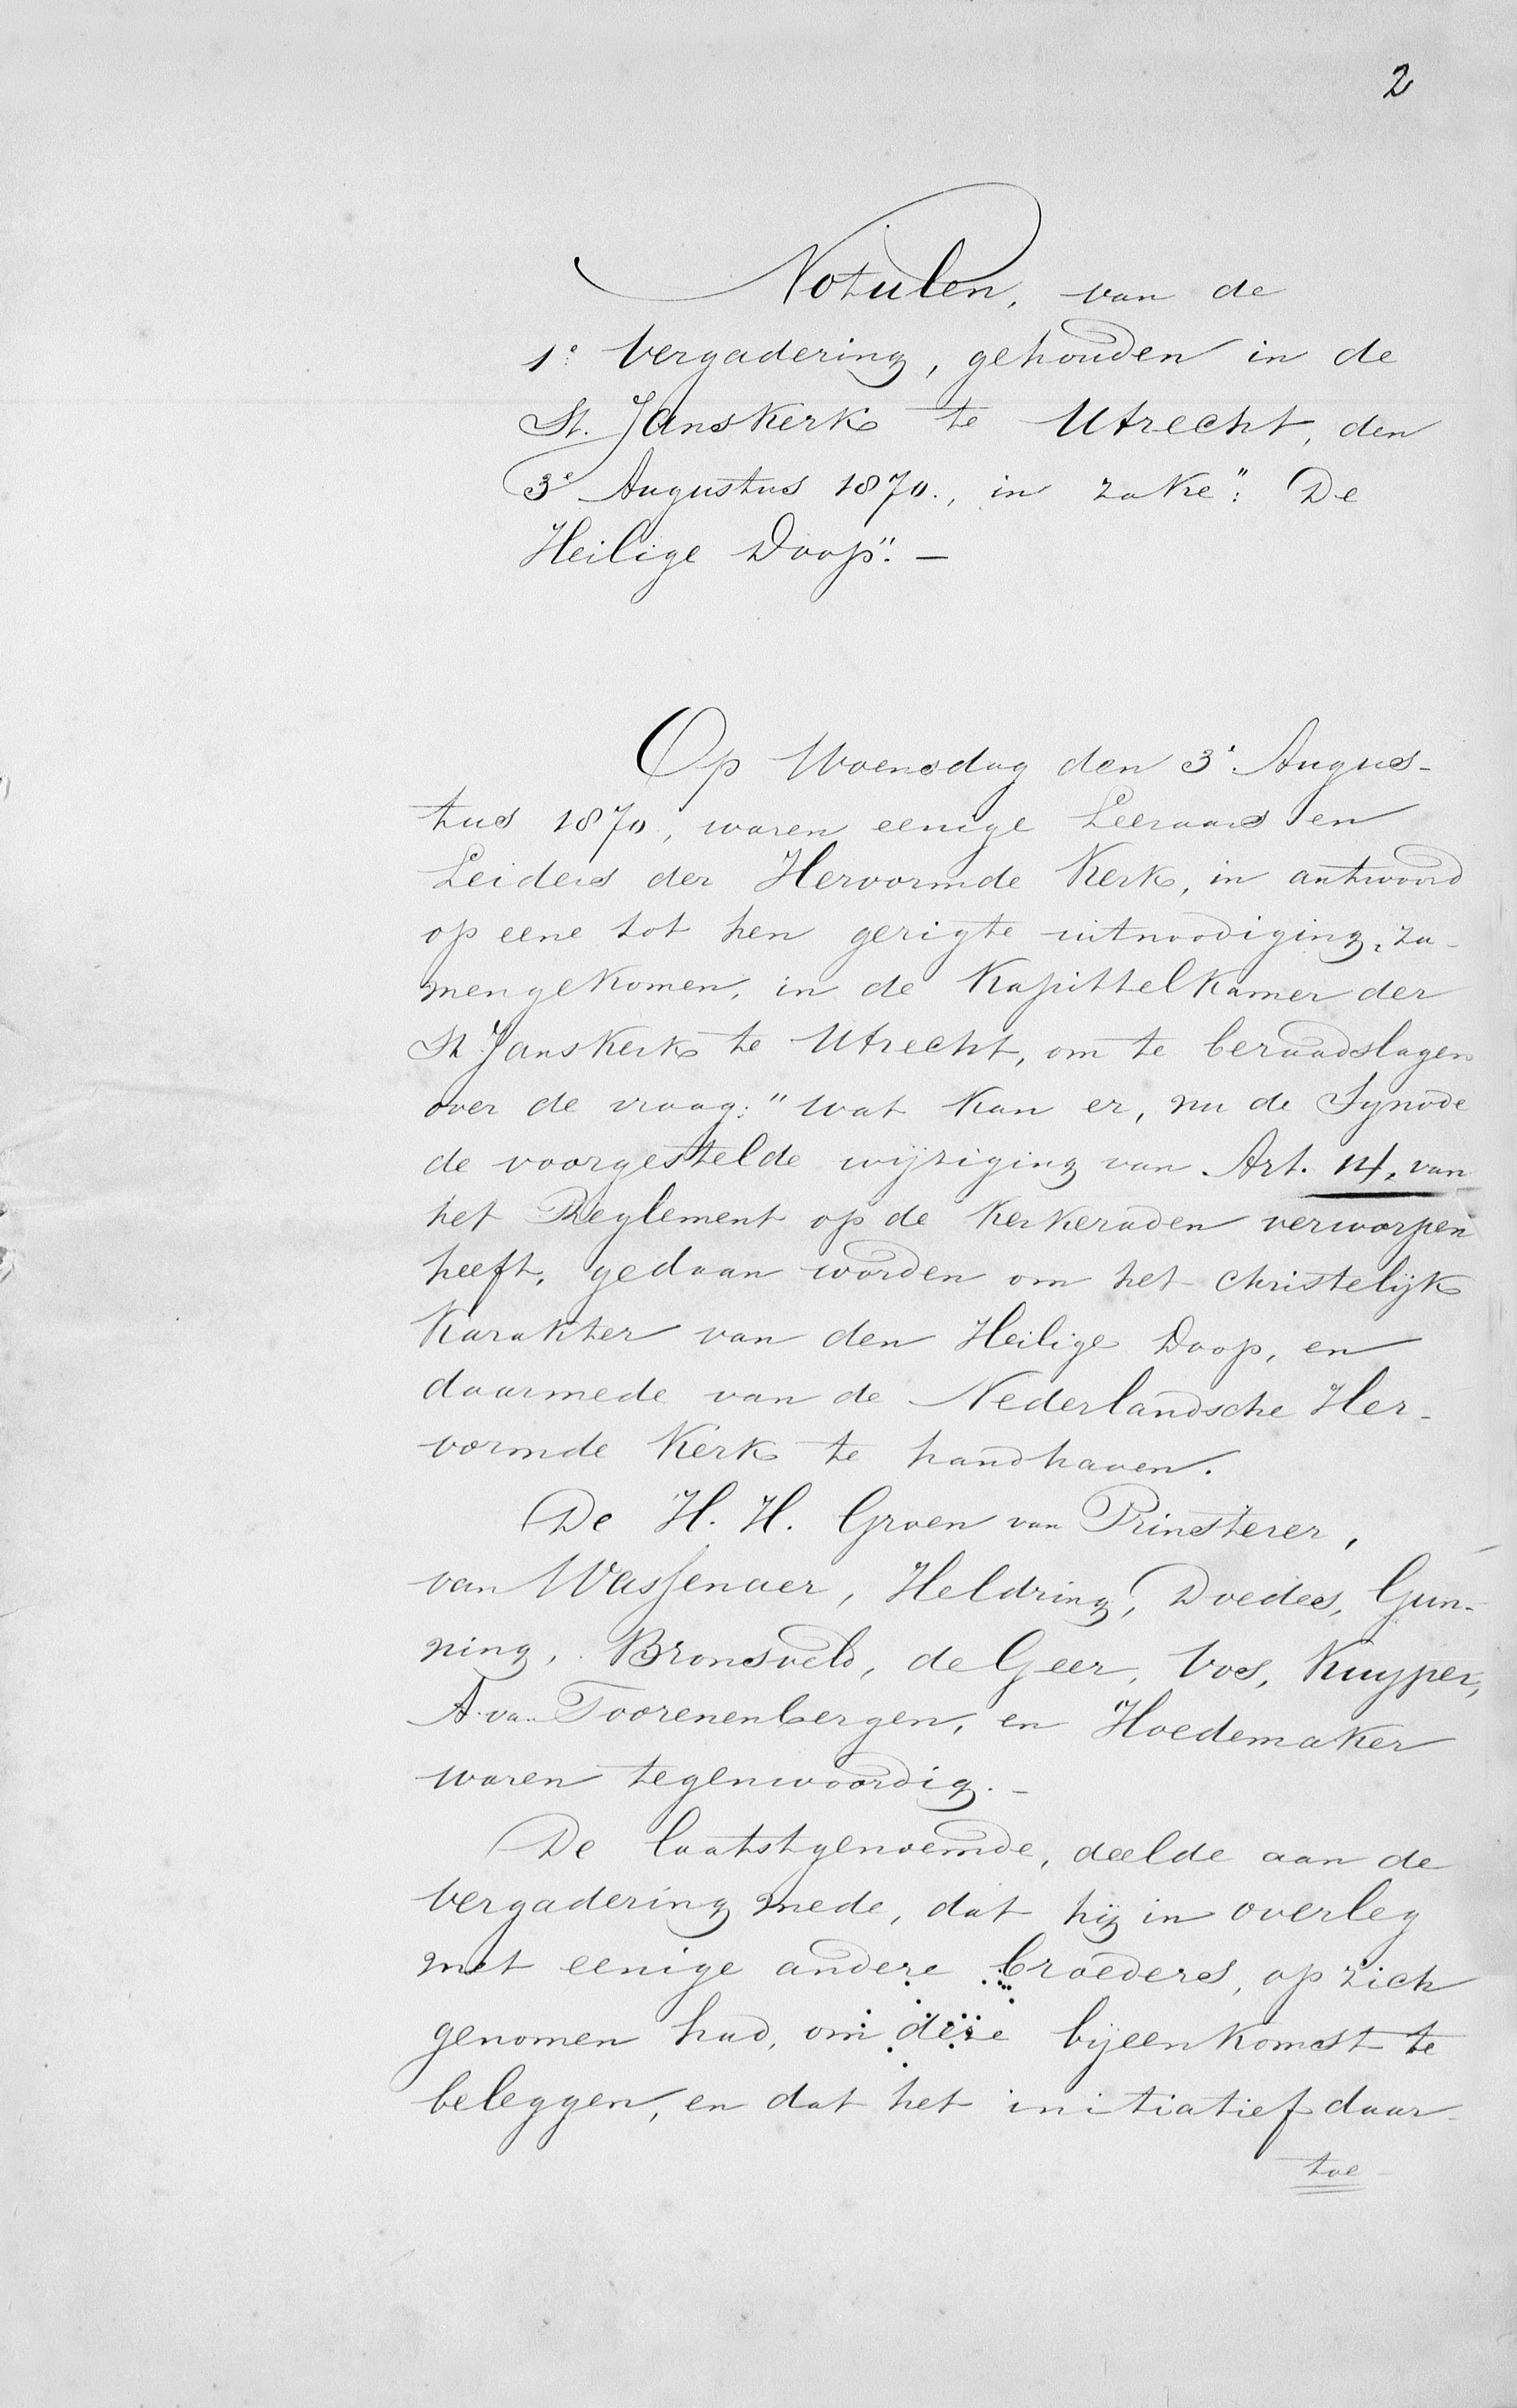 2
Notulen, van de
1e Vergadering, gehouden in de
St. Janskerk te Utrecht, den
3e Augustus 1870., in zake": De
Heilige Doop". —
Op Woensdag den 3e Augus-
tus 1870, waren eenige Leeraars en
Leiders der Hervormde Kerk, in antwoord
op eene tot hen gerigte uitnoodiging, za-
mengekomen, in de Kapittelkamer der
St. Janskerk te Utrecht, om te beraadslagen
over de vraag: "wat kan er, nu de Synode
de voorgestelde wijziging van Art. 14, van
het Reglement op de Kerkeraden verworpen
heeft, gedaan worden om het christelijk
Karakter van den Heilige Doop, en
daarmede van de Nederlandsche Her-
vormde Kerk te handhaven.
De H. H. Groen van Prinsterer,
van Wassenaer, Heldring, Doedes, Gun-
ning, Bronsveld, de Geer, Vos, Kuyper,
A. van Toorenenbergen, en Hoedemaker
waren tegenwoordig. —
De laatstgenoemde, deelde aan de
Vergadering mede, dat hij in overleg
met eenige andere broeders, op zich
genomen had, om deze bijeenkomst te
beleggen, en dat het initiatief daar-
toe